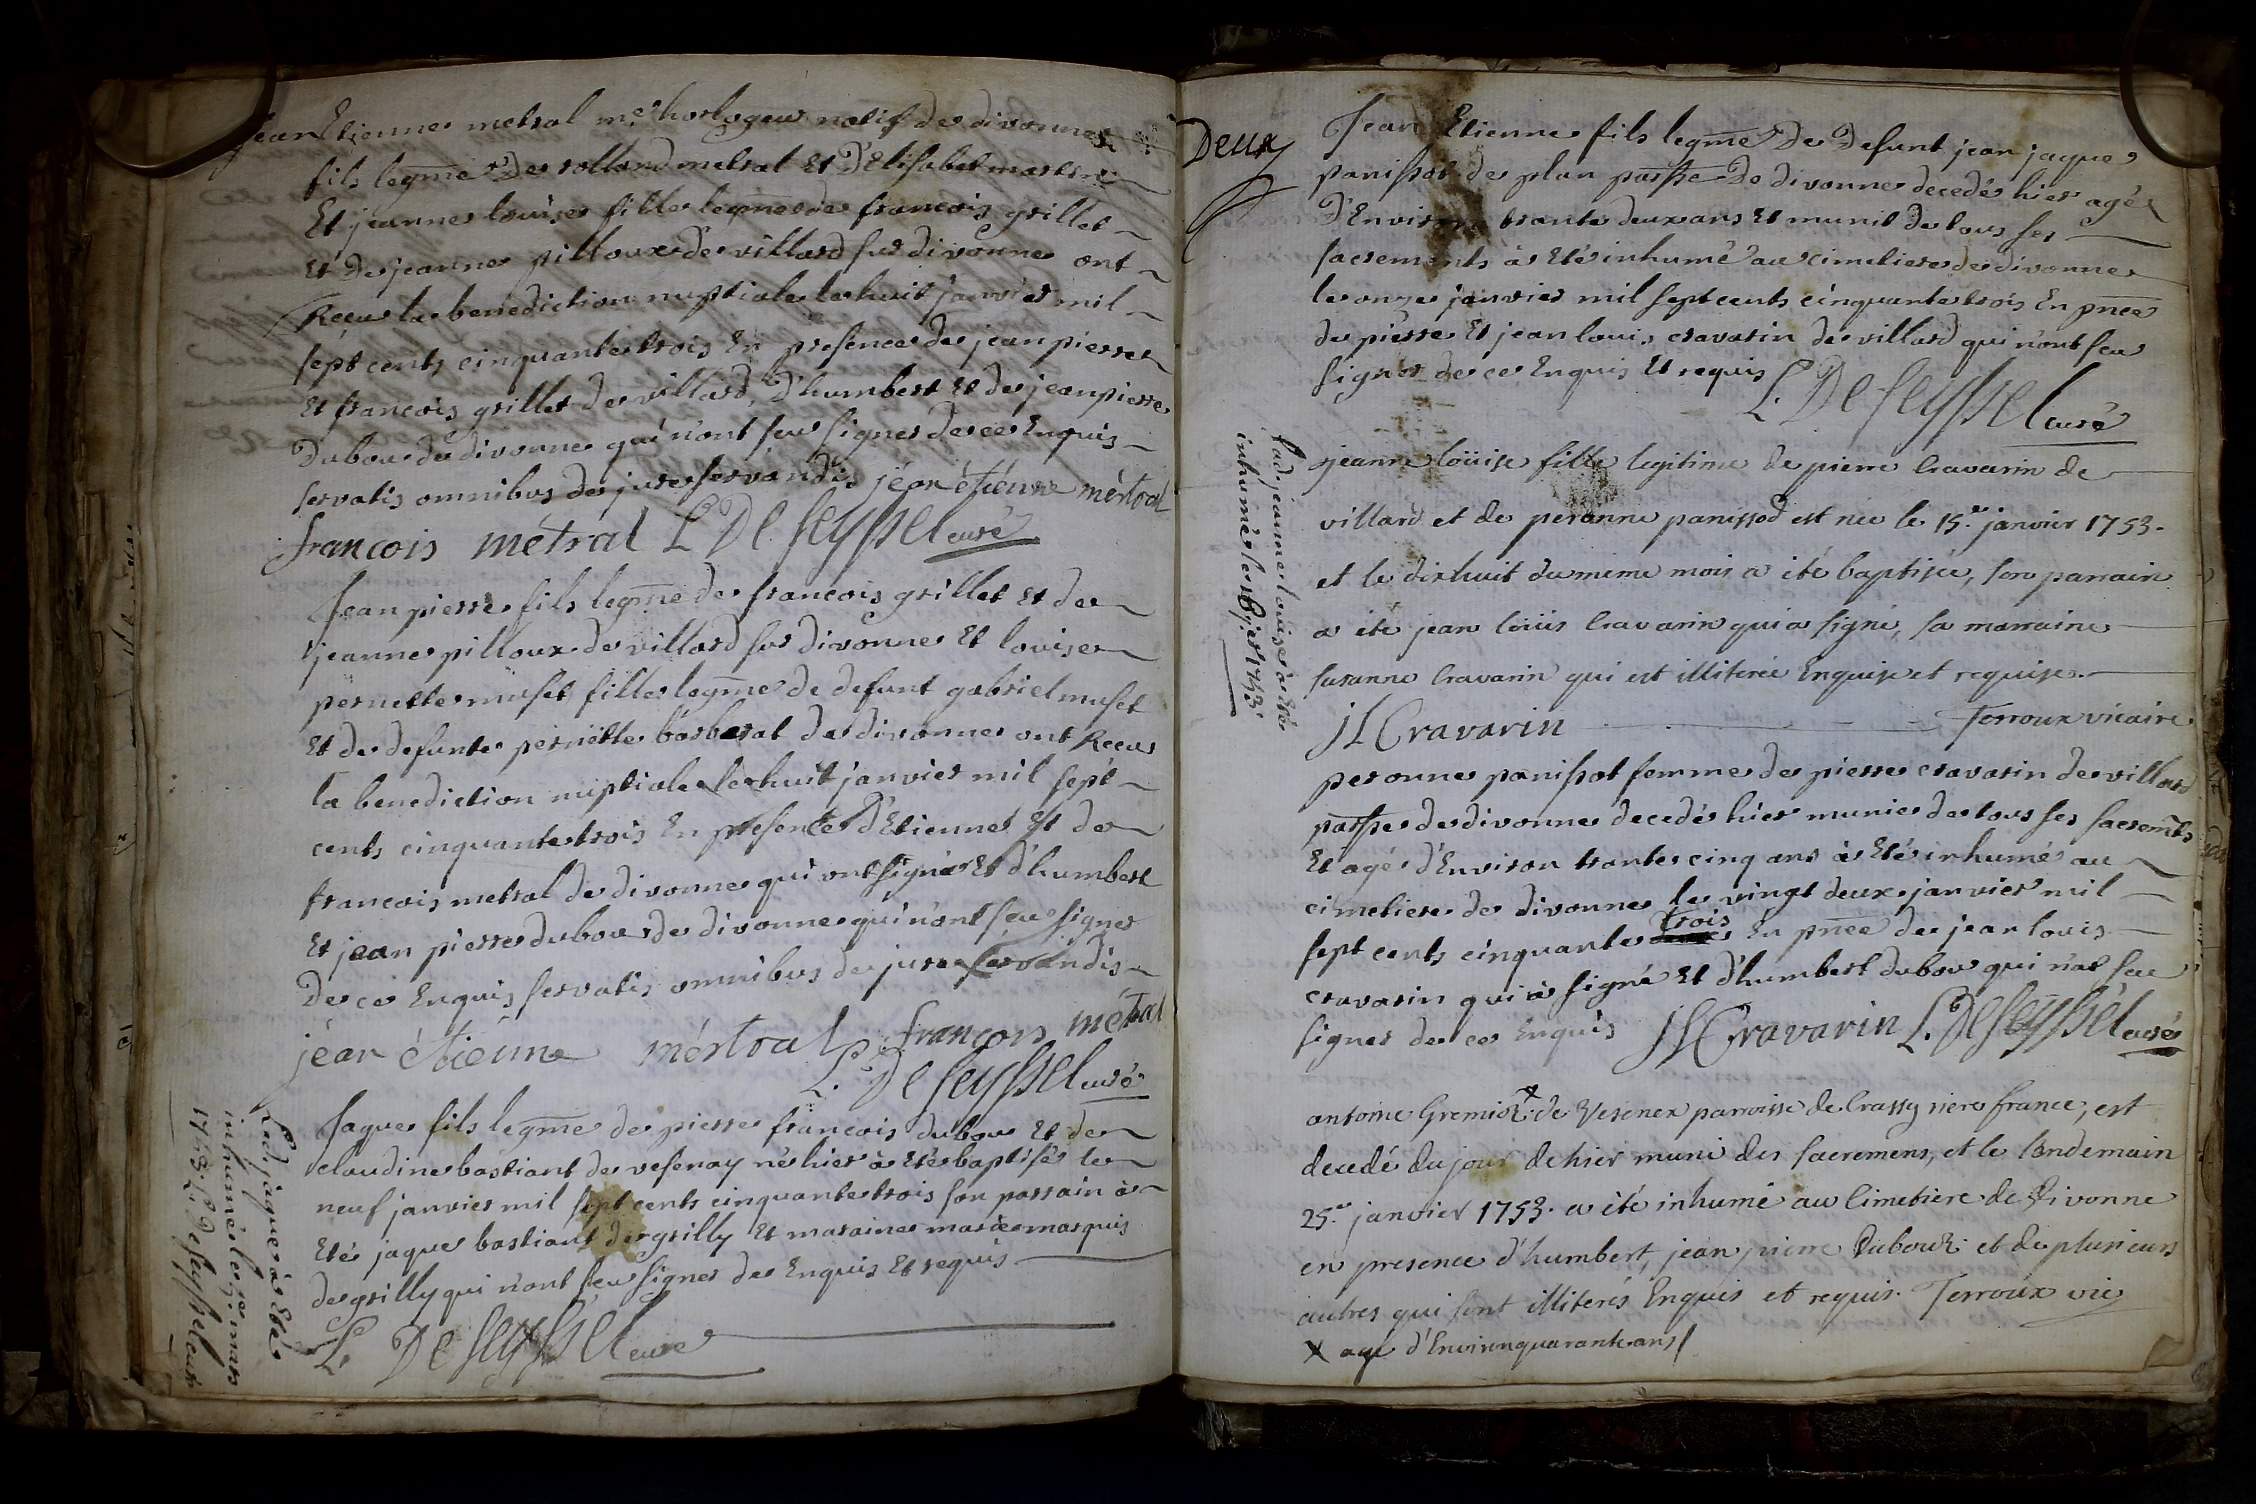 Jean Etienne metral me horlogeur natif de divonne
fils legme de rolland metral Et D'Elisabet martin
Et jeanne louise fille legme de francois grillet
Et De jeanne pilloux de villard sur divonne ont
Reçeu la benediction nuptiale le huit janvier mil
sept cents cinquante trois En presence de jean pierre
Et francois grillet de villard, D'humbert Et de jean pierre
Dubou de divonne qui n'ont seu signer de ce Enquis
servatis omnibus de jure servandis jéan étiénne méstral
francois métral L. De Seyssel curé
Jean pierre fils legme de francois grillet Et de
jeanne pilloux de villard sur divonne Et louise
pernette muset fille legme de defunt gabriel muset
Et de defunte pernette barberat de divonne ont Reçeus
la benediction nuptiale le huit janvier mil sept
cents cinquante trois En presence d'Etienne Et de
francois metral de divonne qui ont signé Et d'humbert
Et jean pierre dubou de divonne qui n'ont seu signer
De ce Enquis servatis omnibus de jure servandis
jéan étiénne méstral françois métral
L. De Seyssel curé
Jaque fils legme de pierre francois dubou Et de
claudine bastiant de vesenay né hier à Eté baptisé le
neuf janvier mil sept cents cinquante trois son parrain à
Eté jaque bastiant de grilly Et maraine mariemarquis
de grilly qui n'ont seu signer de Enquis Et requis
L. De Seyssel curé
Led. jaque à Eté
inhumé le 3e mars
L. De Seyssel curé
Deux
Jean Etienne fils legme De Defunt jean jaque
panissot de plan passe De divonne decedé hier agé
D'Environ trante deux ans Et munit de tous ses
sacrements à Eté inhumé au cimetiere de divonne
le onze janvier mil sept cents cinquante trois En pnce
de pierre Et jean louis cravarin de villard qui n'ont seu
signer de ce Enquis Et requis L. De Seyssel curé
jeanne loüise fille legitime de pierre Cravarin de
villard et de peronne panissod est née le 15.e janvier 1753.
et le dixhuit du meme mois a été baptisée, son parrain
a été jean loüis Cravarin qui a signé, sa marraine
susanne Cravarin qui est illiterée Enquise et requise.
JL Cravarin Terroux vicaire
lad. jeanne louise à Eté
inhumé le
peronne panissot femme de pierre cravarin de villard
passe de divonne decedé hier munie de tous ses sacremts
Et agé d'Environ trante cinq ans à Eté inhumé au
cimetiere de divonne le vingt deux janvier mil
sept cents cinquante trois En pnce de jean louis
cravarin qui à signé Et d'humbert dubou qui n'at seu
signer de ce Enquis JL Cravarin L. De Seyssel curé
antoine Gremion X de Vesenex parroisse de Crassy riere france, est
decedé du jour de hier muni des sacremens, et le landemain
25.e janvier 1753. a été inhumé au Cimetiere de Divonne
en presence d'humbert, jean pierre Dubouz et de plusieurs
autres qui sont illiterés Enquis et requis. Terroux vic
X agé d'Environ quarante ans /